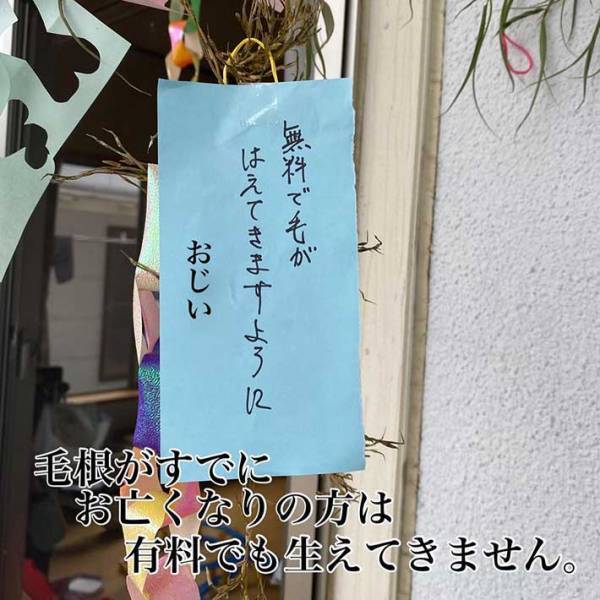 無料で毛が
はえてきますように
おじい
毛根がすでに
お亡くなりの方は
有料でも生えてきません。